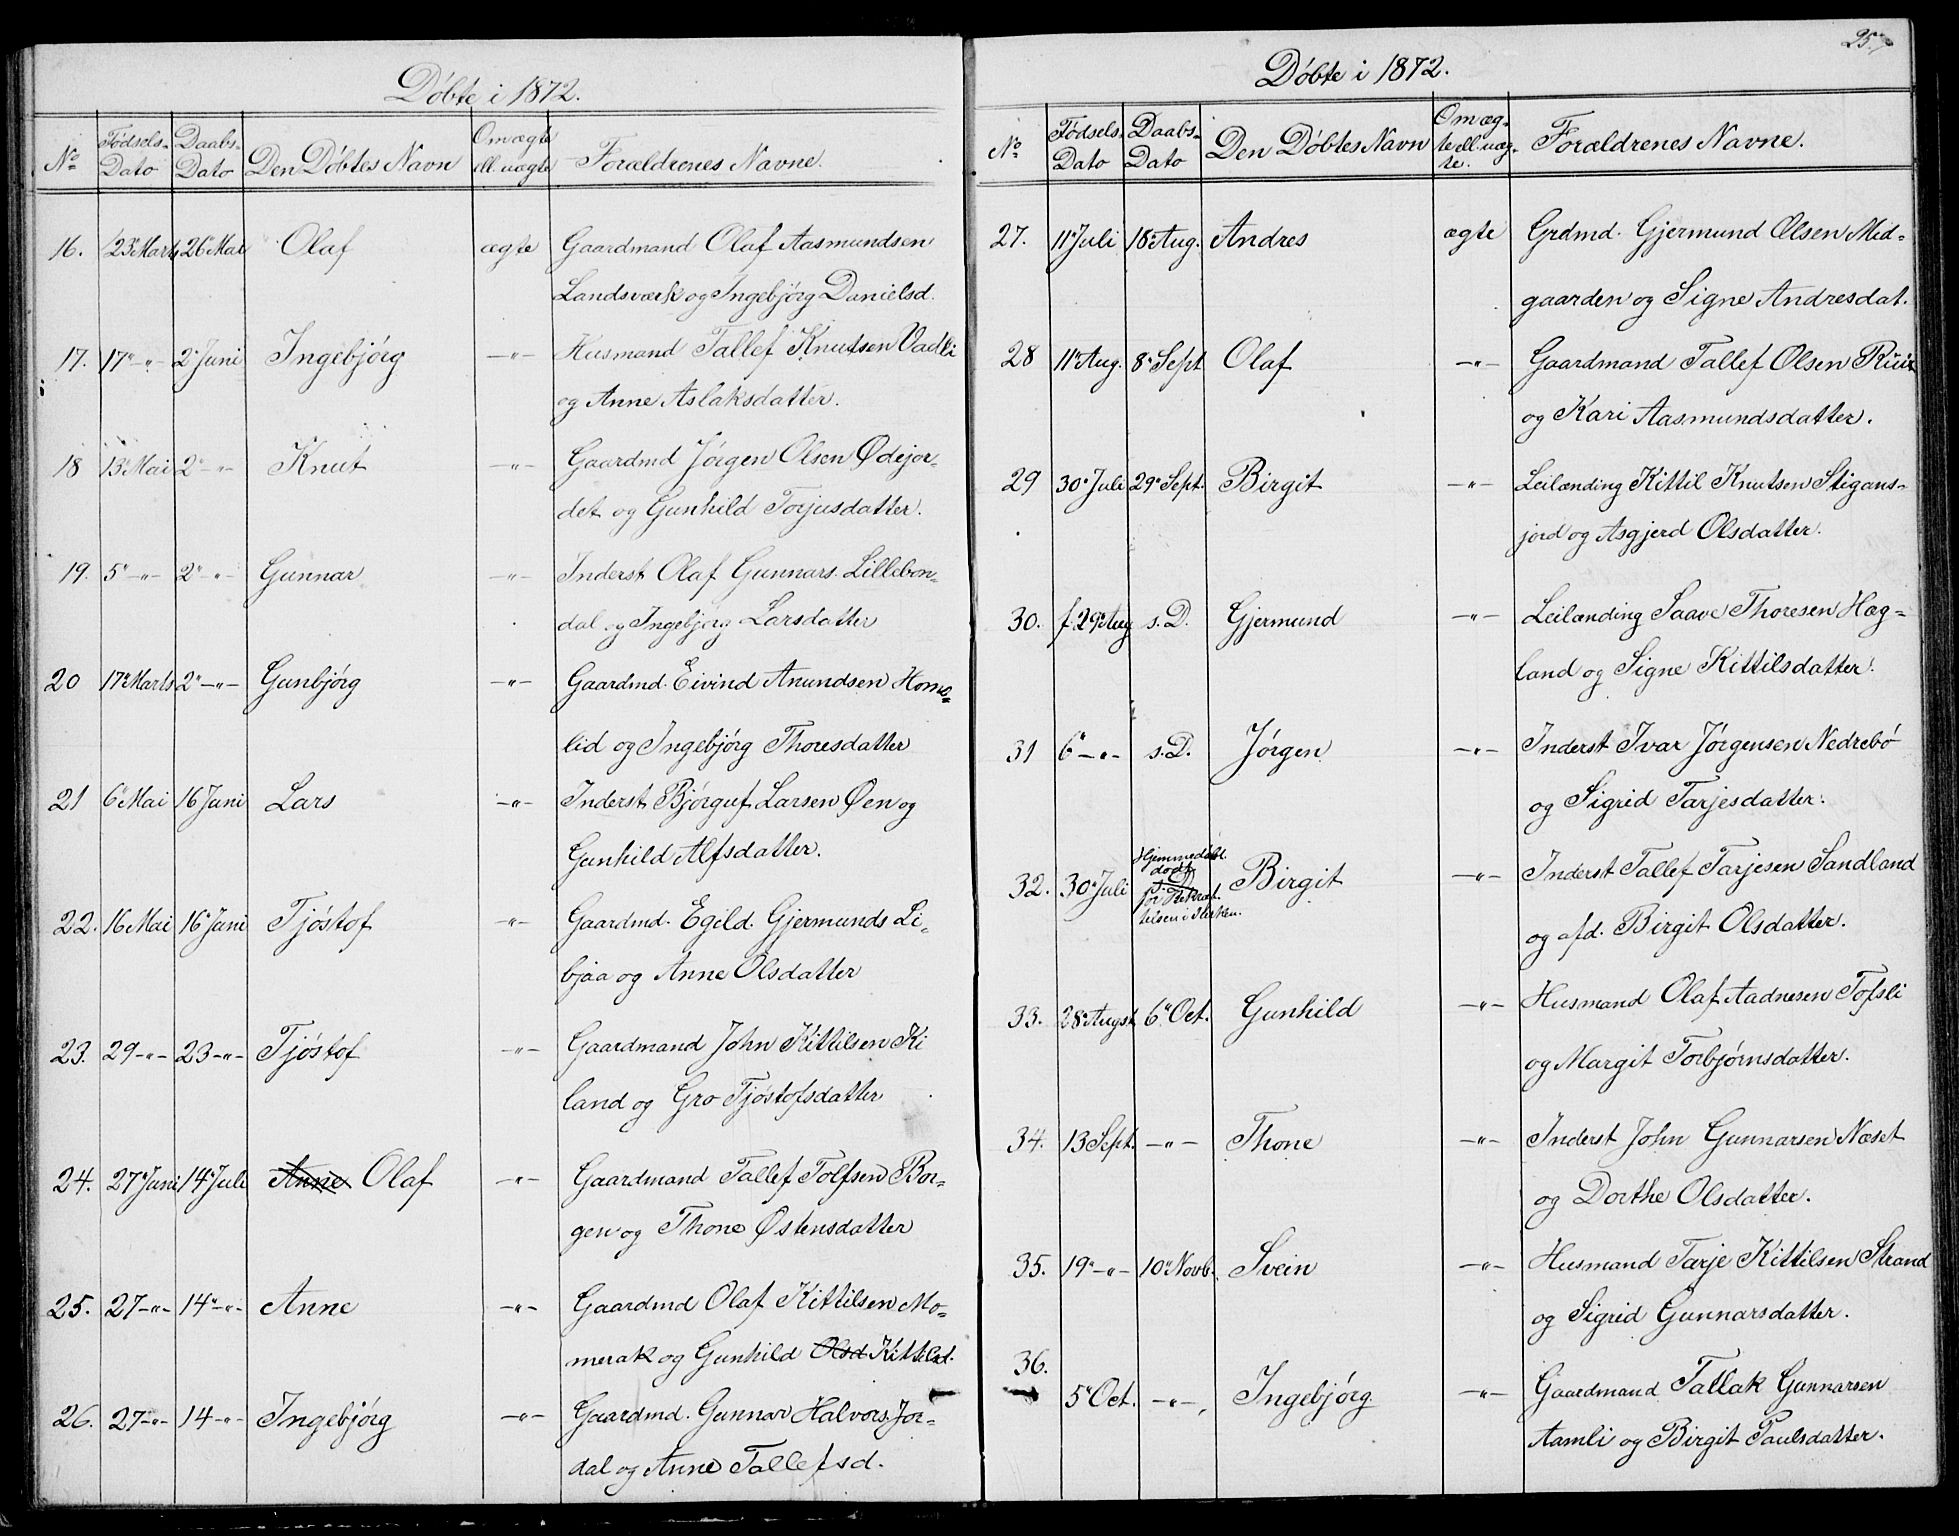 Döbte i 1872.
No Fødsels- Dato Daabs- Dato Den Döbtes Navn Om ægte ell. uægte Forældrenes Navne.
16. 23 Marts 26 Mai Olaf ægte Gaardmand Olaf Aasmundsen
Landsværk og Ingebjörg Danielsd.
17. 17 -"- 2 Juni Ingebjörg -"- Husmand Tallef Knutsen Vadli
og Anne Aslaksdatter.
18 13 Mai 2 -"- Knut -"- Gaardmd Jörgen Olsen Ødejor-
det og Gunhild Torjusdatter.
19. 5 -"- 2 -"- Gunnar -"- Inderst Olaf Gunnars. Lillebon-
dal og Ingebjörg Larsdatter
20 17 Marts 2 -"- Gunbjörg -"- Gaardmd. Eivind Anundsen Home-
lid og Ingebjörg Thoresdatter
21 6 Mai 16 Juni Lars -"- Inderst Bjórguf Larsen Øen og
Gunhild Alfsdatter.
22. 16 Mai 16 Juni Tjöstof -"- Gaardmd. Egild. Gjermunds Li-
bjaa og Anne Olsdatter
23. 29 -"- 23 -"- Tjöstof -"- Gaardmand John Kittilsen Ki
land og Gro Tjöstofsdatter
24. 27 Juni 14 Juli Anne Olaf -"- Gaardmand Tallef Tolfsen Bor-
gen og Thone Østensdatter
25. 27 -"- 14 -"- Anne -"- Gaardmd Olaf Kittilsen Mo-
merak og Gunhild Olsd Kittilsd.
26. 27 -"- 14 -"- Ingebjörg -"- Gaardmd. Gunnar Halvors. Jor-
dal og Anne Tallefsd.
25.
Döbte i 1872.
No Fødsels Dato Daabs- Dato Den Döbtes Navn Om æg- te ell. uæg- te. Forældrenes Navne.
27. 11 Juli 18 Aug. Andres ægte Grdmd. Gjermund Olsen Mid-
gaarden og Signe Andresdat.
28 11 Aug. 8 Sept Olaf -"- Gaardmand Tallef Olsen
og Kari Aasmundsdatter.
29 30 Juli 29 Sept. Birgit -"- Leilænding Kittil Knutsen Stigans-
jord og Asgjerd Olsdatter.
30. f. 29 Aug s. D. Gjermund -"- Leilænding Saave Thoresen Hæg-
land og Signe Kittilsdatter.
31 6 -"- s. D. Jörgen -"- Inderst Ivar Jörgensen Nedrebö
og Sigrid Tarjesdatter.
32. 30 Juli Hjemmedöbt. död för i Kirken. Birgit -"- Inderst Tallef Tarjesen Sandland
og afd. Birgit Olsdatter.
33. 28 Augst 6 Oct. Gunhild -"- Husmand Olaf Aadnesen Tofsli
og Margit Torbjörnsdatter.
34. 13 Sept. -"- Thone -"- Inderst John Gunnarsen Næset
og Dorthe Olsdatter.
35. 19 -"- 10 Novb. Svein -"- Husmand Tarje Kittilsen Strand
og Sigrid Gunnarsdatter.
36. 5 Oct. -"- Ingebjörg -"- Gaardmand Tallak Gunnarsen
Aamli og Birgit Paulsdatter.